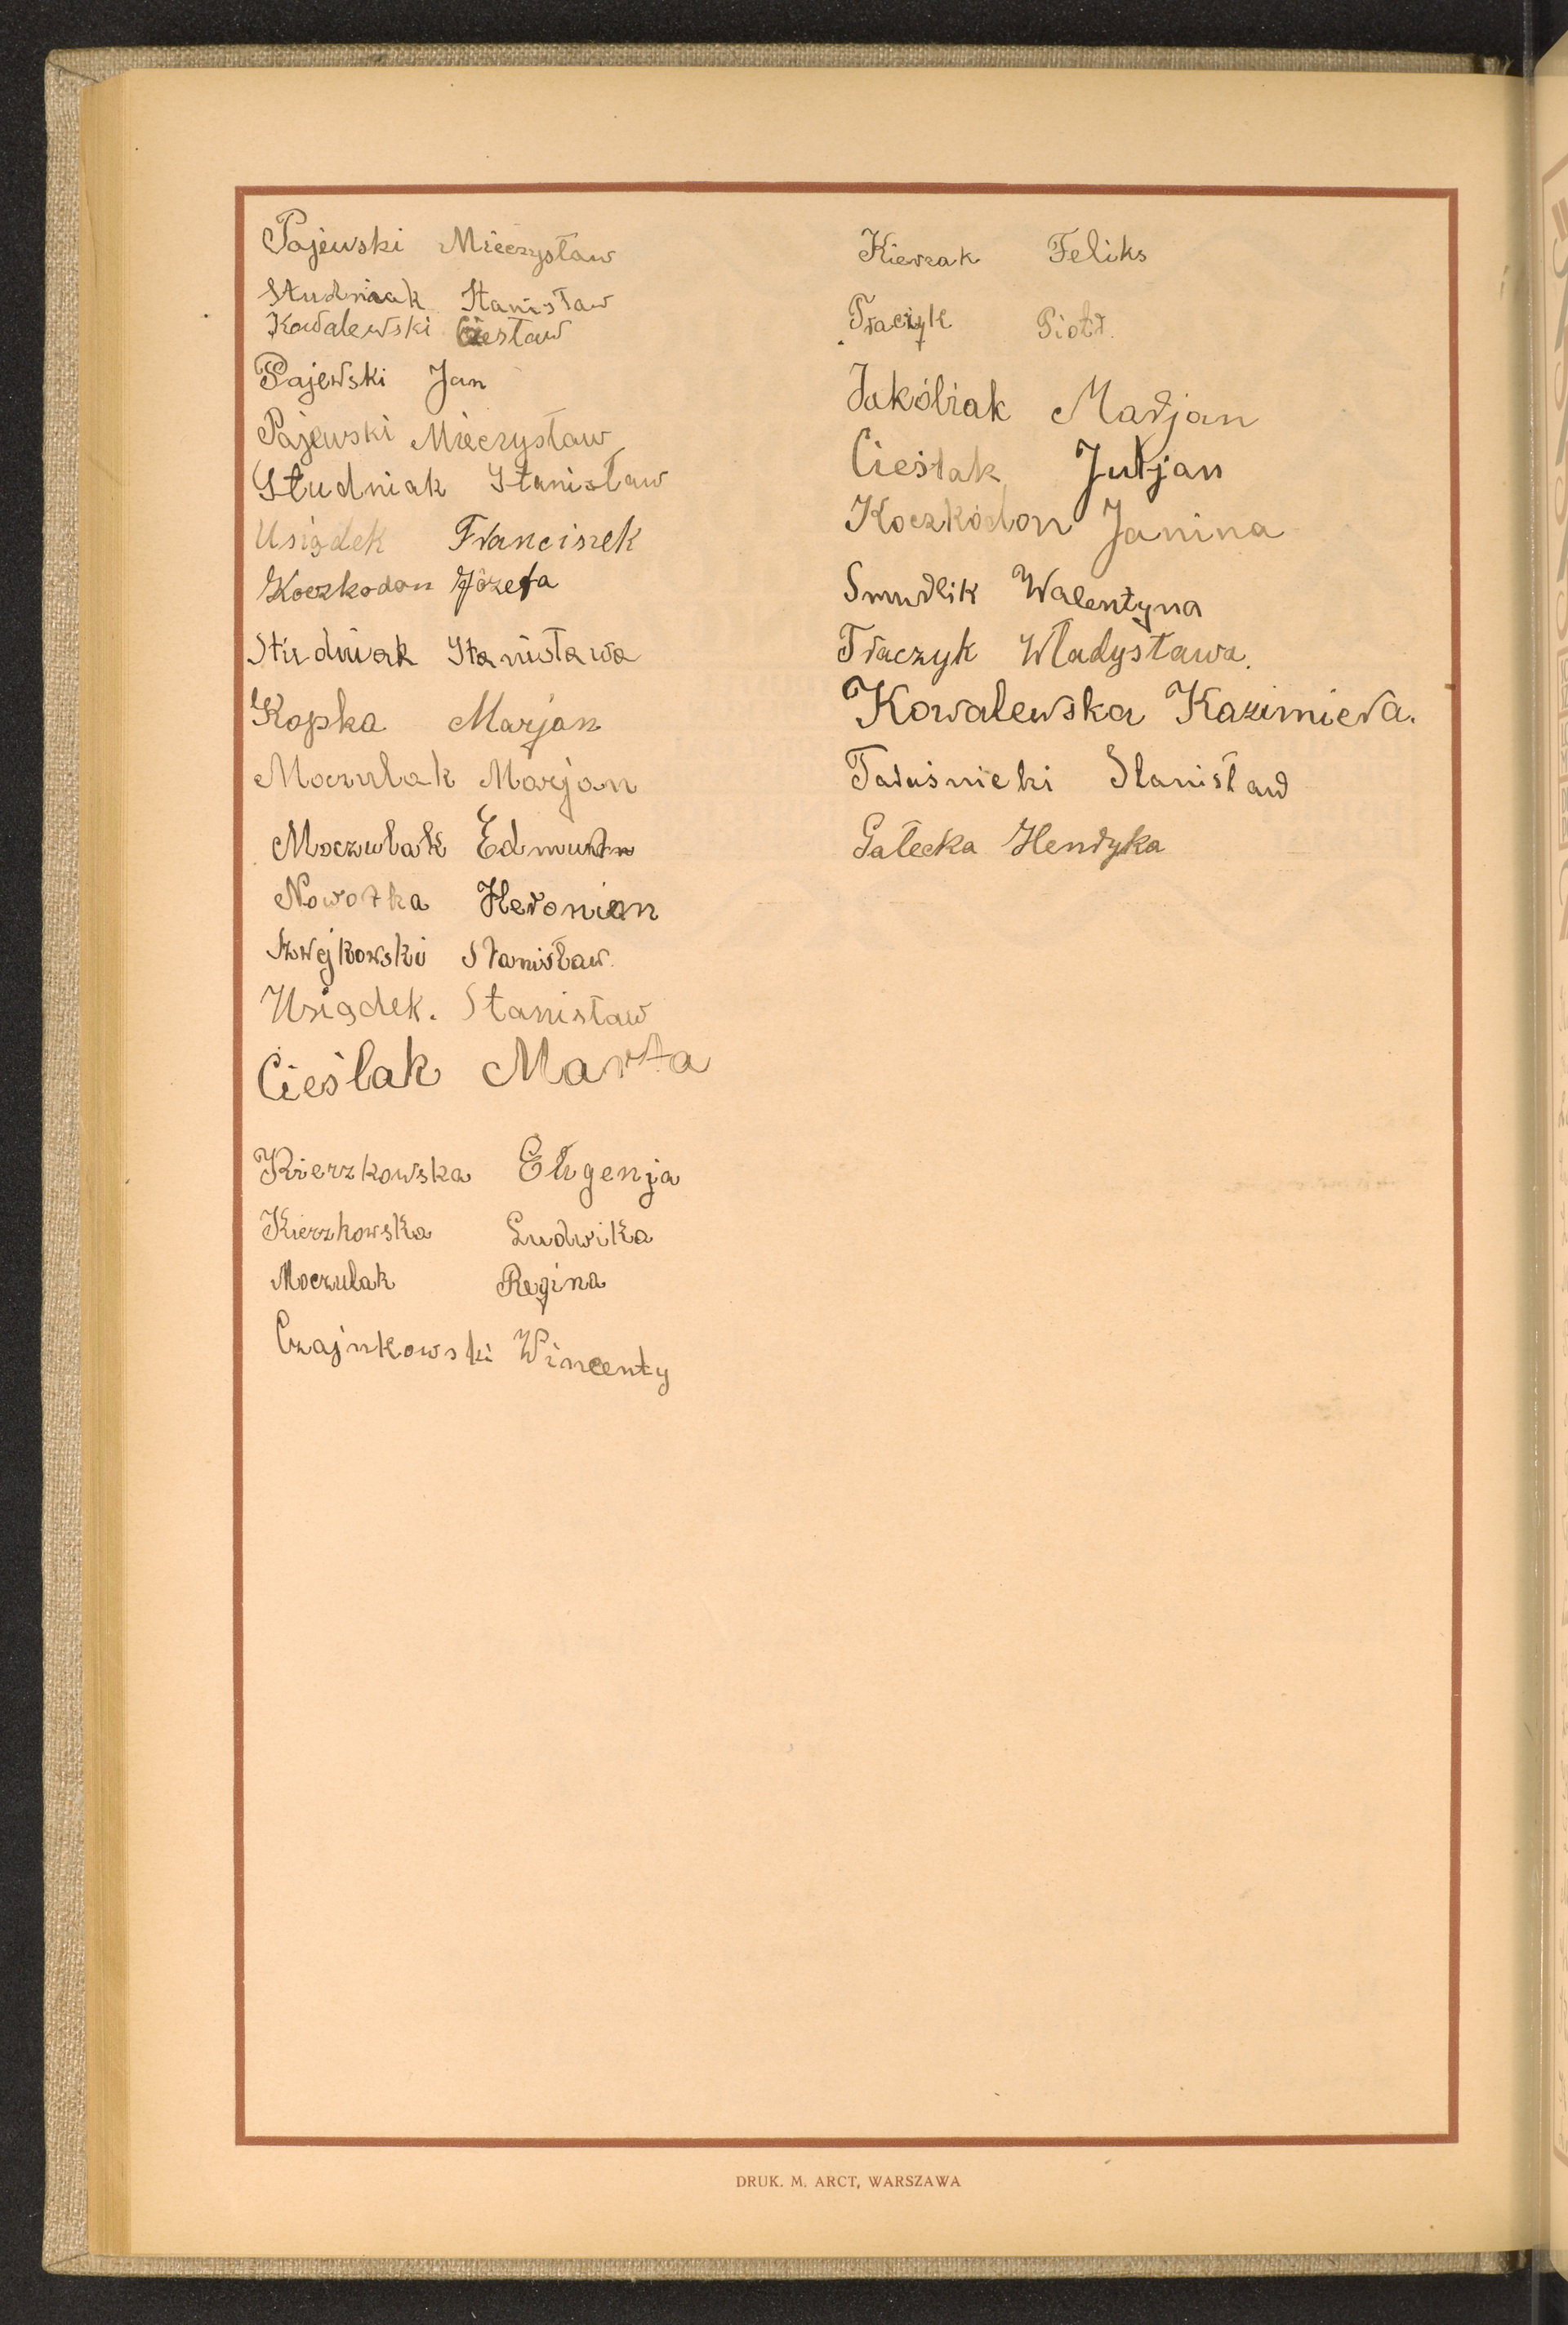 Pajewski Mieczysław
Studniak Stanisław
Kowalewski Ciesław
Pajewski Jan
Pajewski Mieczysław
Studniak Stanisław
Usiądek Franciszek
Koczkodon Józefa
Studniak Stanisława
Kopka Marjan
Moczulak Marjan
Moczulak Edmund
Nowotka Heronian
Szwejkowski Stanisław.
Usiądek. Stanisław
Cieślak Marta
Kierzkowska Eugenja
Kierzkowska Ludwika
Moczulak Regina
Czajnkowski Wincenty
Kierzak Feliks
Traczyk Piotr.
Jakóbiak Marjan
Cieślak Juljan
Koczkodon Janina
Smurlik Walentyna
Traczyk Władysława.
Kowalewska Kazimiera.
Taraśnicki Stanisław
Gałecka Henryka
DRUK. M. ARCT, WARSZAWA